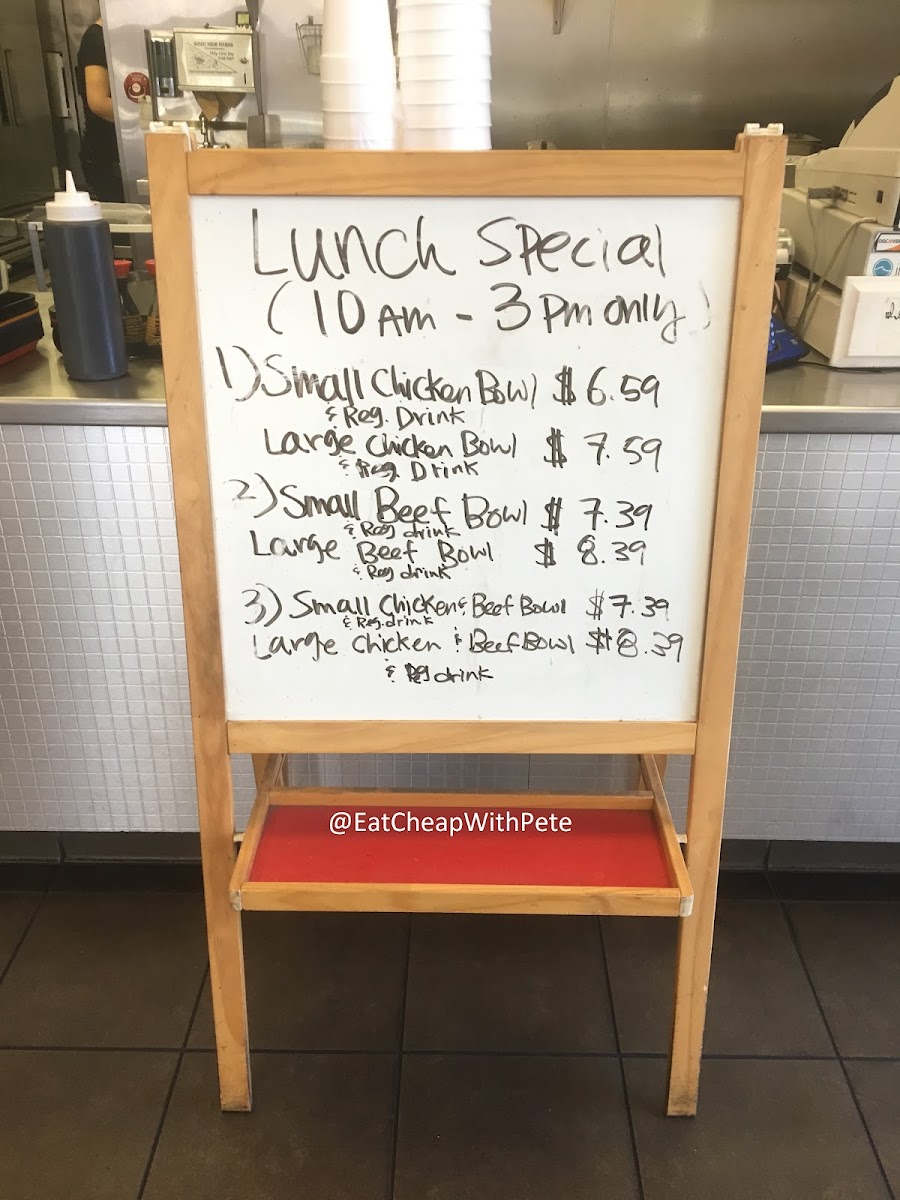 Lunch Special
(10 Am - 3 Pm only)
1) Small Chicken Bowl $ 6.59
& Reg. Drink
Large Chicken Bowl $ 7.59
& Reg. Drink
2) Small Beef Bowl $ 7.39
& Reg drink
Large Beef Bowl $ 8.39
& Reg drink
3) Small Chicken & Beef Bowl $7.39
& Reg. drink
Large Chicken & Beef Bowl $8.39
& Reg drink
@EatCheapWithPete
DISCOVER